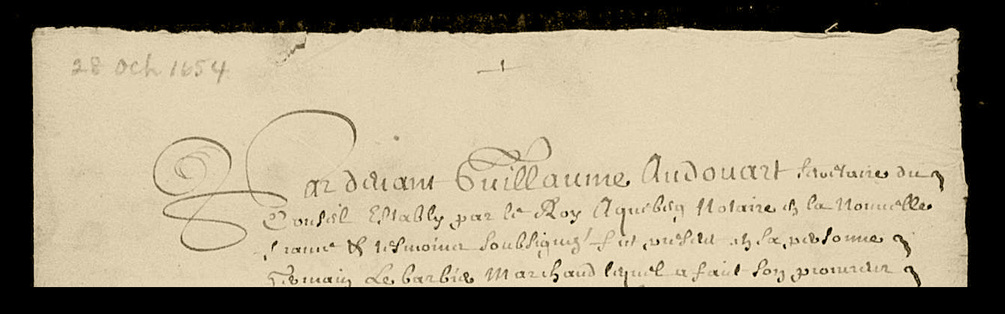 28 Oct 1654
Pardevant Guillaume Audouart Secretaire du
Conseil Estably par le Roy Aquebeq Notaire en la Nouuelle
france & tesmoins soubsignez fut present en sa personne
Germain Le barbier Marchand lequel a fait son procureur